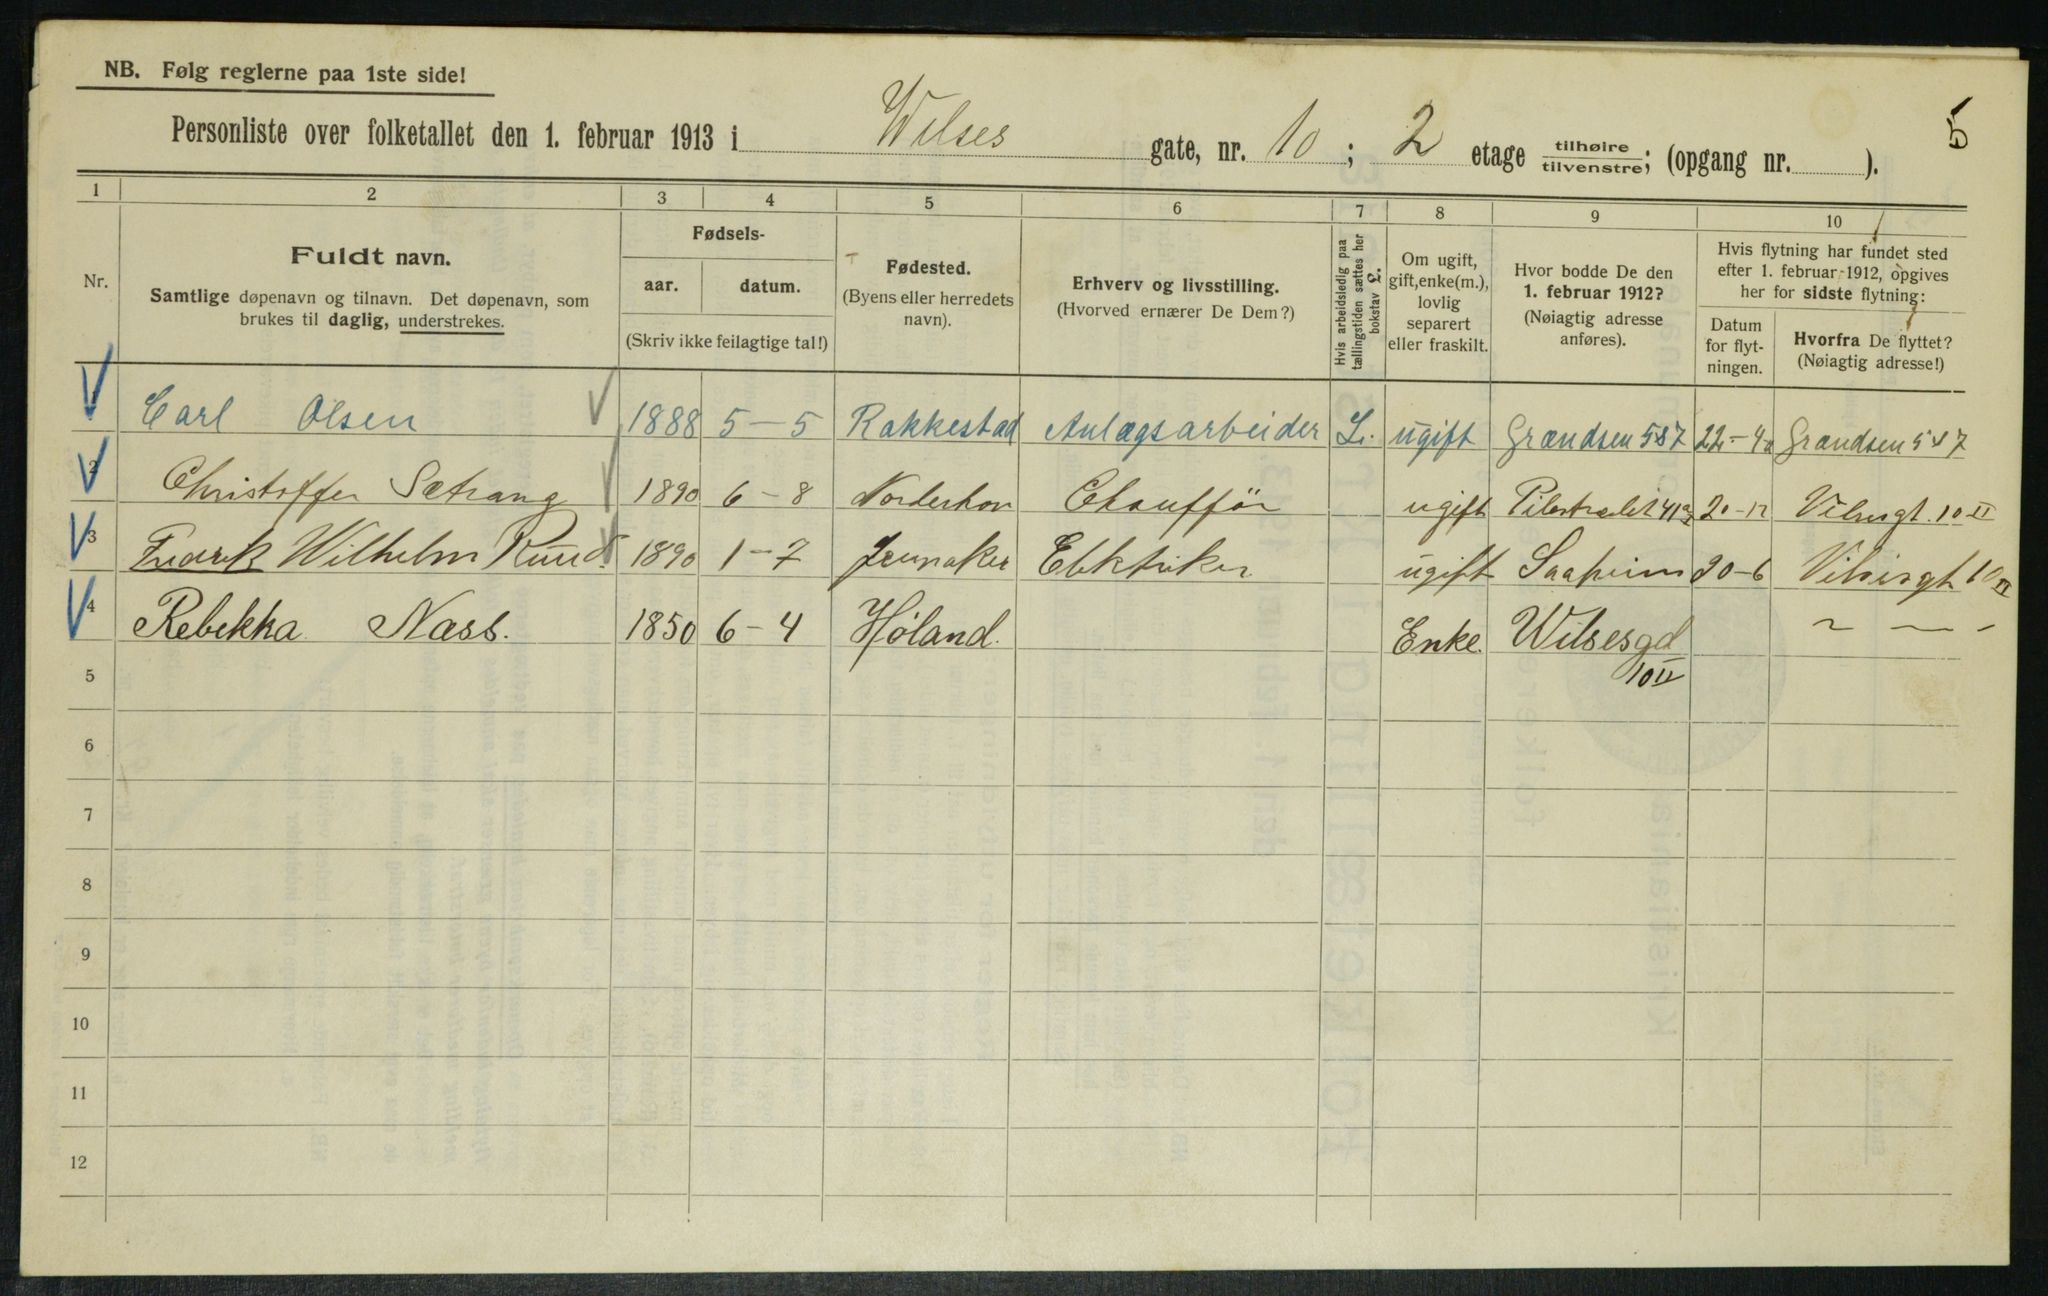 NB. Følg reglerne paa 1ste side!
5
Personliste over folketallet den 1. februar 1913 i Wilses gate, nr. 10; 2 etage tilhøire/tilvenstre; (opgang nr. ).
1 2 3 4 5 6 7 8 9 10
Nr.
Fuldt navn.
Samtlige døpenavn og tilnavn. Det døpenavn, som
brukes til daglig, understrekes.
Fødsels-
aar. datum.
(Skriv ikke feilagtige tal!)
Fødested.
(Byens eller herredets
navn).
Erhverv og livsstilling.
(Hvorved ernærer De Dem?)
Hvis arbeidsledig paa
tællingstiden sættes her
bokstav L.
Om ugift,
gift, enke(m.),
lovlig
separert
eller fraskilt.
Hvor bodde De den
1. februar 1912?
(Nøiagtig adresse
anføres).
Hvis flytning har fundet sted
efter 1. februar 1912, opgives
her for sidste flytning:
Datum
for flyt-
ningen.
Hvorfra De flyttet?
(Nøiagtig adresse!)
Carl Olsen 1888 5-5 Rakkestad Anlægsarbeider L. ugift Grændsen 587 22-4 Grændsen 587
2 Christoffer Sætrang 1890 6-8 Norderhov Chauffør ugift Pilestrædet 41 20-12 Vilsesgt. 10 II
3 Fredrik Wilhelm Ruud. 1890 1-7 Jevnaker Elektriker ugift Saaheim 20-6 Vilsesgt 10 II
4 Rebekka Næss. 1850 6-4 Høland. Enke. Wilsesgd
10 II
~ — -
5
6
7
8
9
10
11
12